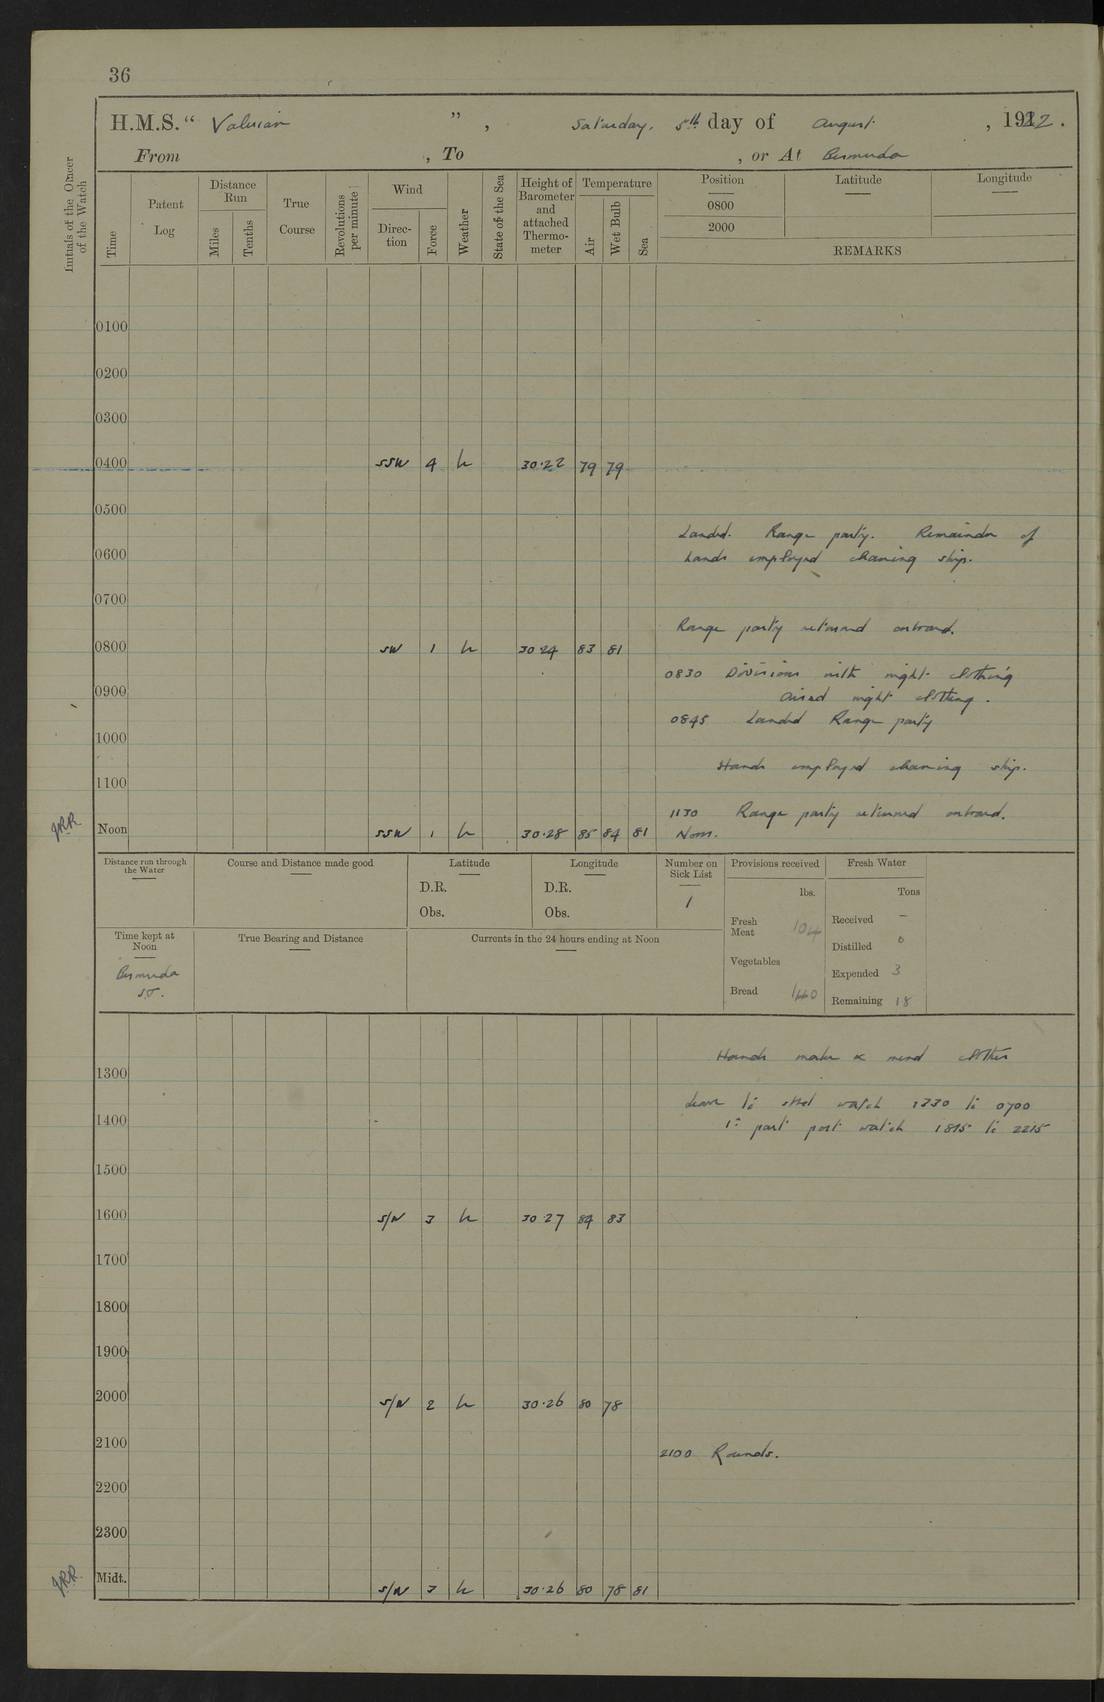 36
H.M.S. “ Valerian ”, Saturday, 5th day of August, 1922.
From , To , or At Bermuda
Initials of the Officer of the Watch
Time
Patent Log
Distance Run
Miles
Tenths
True Course
Revolutions per minute
Wind
Direc-tion
Force
Weather
State of the Sea
Height of Barometer and attached Thermo-meter
Temperature
Air
Wet Bulb
Sea
Position
Latitude
Longitude
0800
2000
REMARKS
0100
0200
0300
0400 SSW 4 30.22 79 79
0500
Landed. Range party. Remainder of
0600
hands employed cleaning ship.
0700
Range party returned onboard.
0800 SW 1 30 24 83 81
0830 Divisions with night clothing
0900
Aired night clothing.
0845 Landed Range party
1000
Hands employed cleaning ship.
1100
1130 Range party returned onboard.
JRR Noon SSW 1 30.28 85 84 81 Noon.
Distance run through the Water
Course and Distance made good
Latitude
D.R.
Obs.
Longitude
D.R.
Obs.
Number on Sick List
1
Provisions received
lbs.
Fresh Meat 104
Vegetables
Bread 140
Fresh Water
Tons
Received –
Distilled 0
Expended 3
Remaining 18
Time kept at Noon
Bermuda
S.T.
True Bearing and Distance
Currents in the 24 hours ending at Noon
Hands make & mend clothes
1300
Leave to stbd watch 1330 to 0700
1400
1st part port watch 1815 to 2215
1500
1600 S/W 3 30 27 84 83
1700
1800
1900
2000 S/W 2 30.26 80 78
2100 2100 Rounds.
2200
2300
JRR Midt. S/W 3 30.26 80 78 81